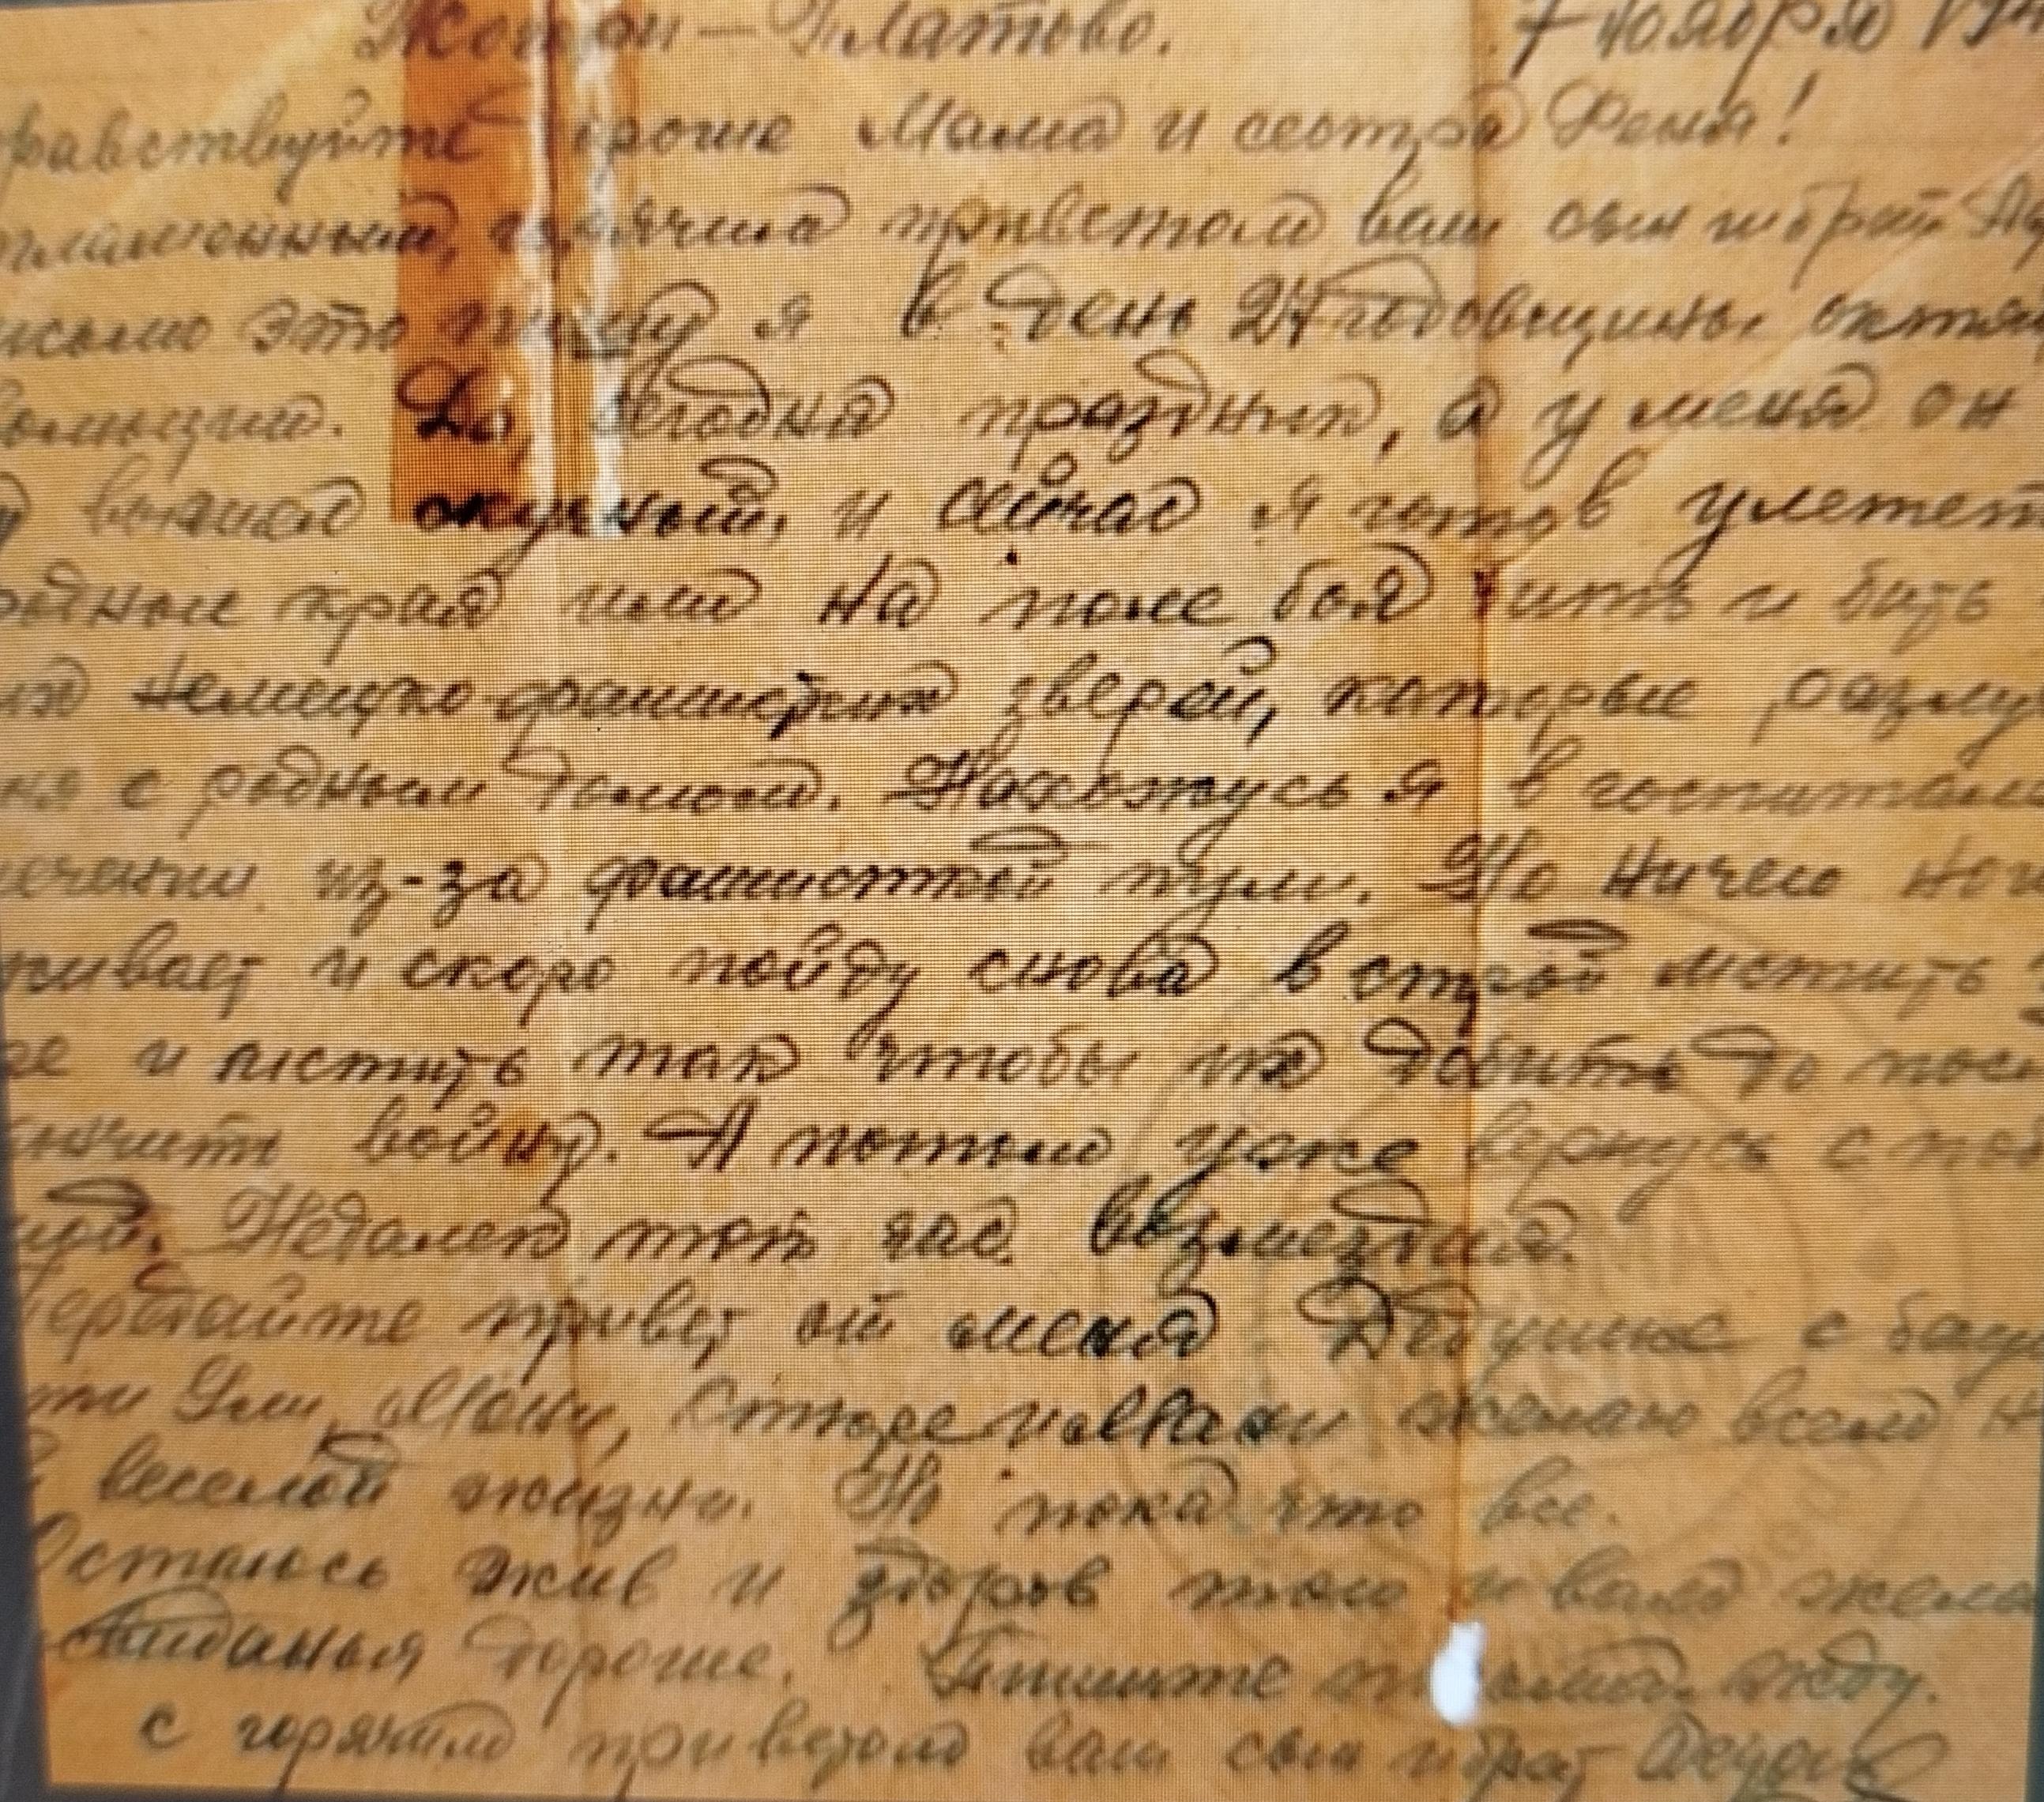 Платово. 7 ноября 194
равствуйте рогие Мама и сестра Феня!
пламенным, приветом ваш сын и брат
исьмо это пишу я в день 24 годовщины октя
волюции. Да, сегодня праздник, а у меня он
вышел скучный, и сейчас я готов улетет
родной край или на поле боя бить и бить
их немецко-фашистких зверей, которые разлу
с родным домом. Нахожусь я в госпитале
лечении из-за фашисткой пули. Но ничего но
живает и скоро пойду снова в строй мстить
и мстить так чтобы их добить до посл
кончить войну. А потом уже вернусь с по
Недалек тот час возмездия.
Передайте привет от меня Дедушке с бабу
желаю всем
веселой жизни. Но пока что все.
Остаюсь жив и здоров того и вам жела
свиданья дорогие. Пишите жду.
с горячим приветом ваш сын и брат